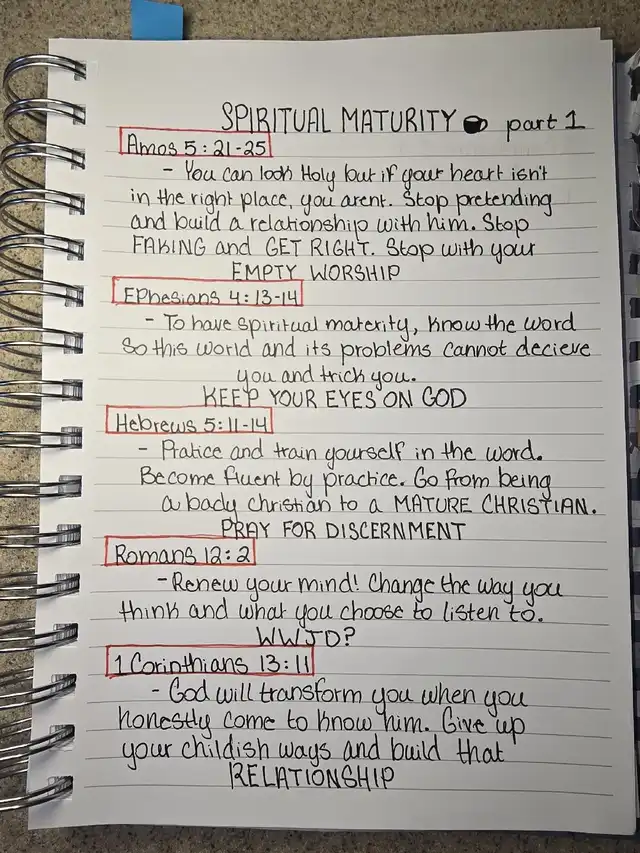 SPIRITUAL MATURITY part 1
Amos 5:21-25
- You can look Holy but if your heart isn't
in the right place, you arent. Stop pretending
and build a relationship with him. Stop
FAKING and GET RIGHT. Stop with your
EMPTY WORSHIP
EPhesians 4:13-14
- To have spiritual materity, know the word
So this world and its problems cannot decieve
you and trick you.
KEEP YOUR EYES ON GOD
Hebrews 5:11-14
- Pratice and train yourself in the word.
Become fluent by practice. Go from being
a baby christian to a MATURE CHRISTIAN.
PRAY FOR DISCERNMENT
Romans 12:2
- Renew your mind! Change the way you
think and what you choose to listen to.
WWJD?
1 Corinthians 13:11
- God will transform you when you
honestly come to know him. Give up
your childish ways and build that
RELATIONSHIP